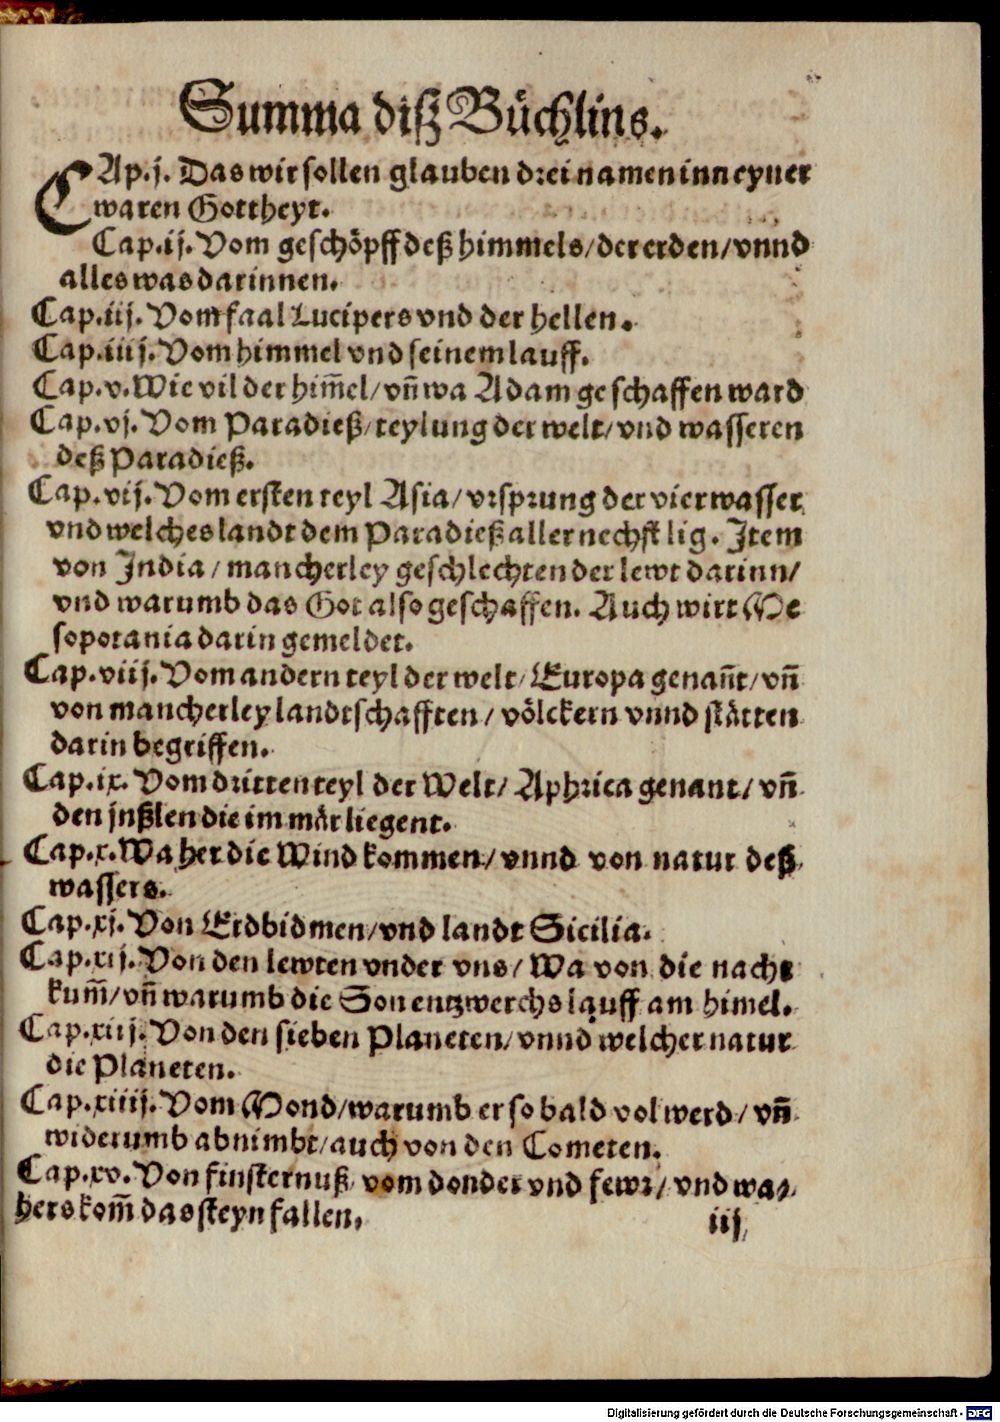 Summa diß Büchlins.
CAp.j. Das wir sollen glauben drei namen inn eyner
waren Gottheyt.
Cap.ij. Vom geschöpff deß himmels/der erden/vnnd
alles was darinnen.
Cap.iij. Vom faal Lucipers vnd der hellen.
Cap.iiij. Vom himmel vnd seinem lauff.
Cap.v. Wie vil der him̃el/vñ wa Adam geschaffen ward
Cap.vj. Vom Paradieß/teylung der welt/vnd wasseren
deß Paradieß.
Cap.vij. Vom ersten teyl Asia/vrsprung der vier wasser,
vnd welches landt dem Paradieß aller nechst lig. Item
von India/mancherley geschlechten der lewt darinn/
vnd warumb das Got also geschaffen. Auch wirt Me
sopotania darin gemeldet.
Cap.viij. Vom andern teyl der welt/Europa genañt/vñ
von mancherley landtschafften/völckern vnnd stätten
darin begriffen.
Cap.ix. Vom dritten teyl der Welt/Aphrica genant/vñ
den jnßlen die im mär liegent.
Cap.x. Wa her die Wind kommen/vnnd von natur deß
wassers.
Cap.xj. Von Erdbidmen/vnd landt Sicilia.
Cap.xij. Von den lewten vnder vns/Wa von die nacht
kum̃/vñ warumb die Son entzwerchs lauff am himel.
Cap.xiij. Von den sieben Planeten/vnnd welcher natur
die Planeten.
Cap.xiiij. Vom Mond/warumb er so bald vol werd/vñ
widerumb abnimbt/auch von den Cometen.
Cap.xv. Von finsternuß/vom donder vnd fewr/vnd wa-
hers kom̃ das steyn fallen.
iij
Digitalisierung gefördert durch die Deutsche Forschungsgemeinschaft - DFG